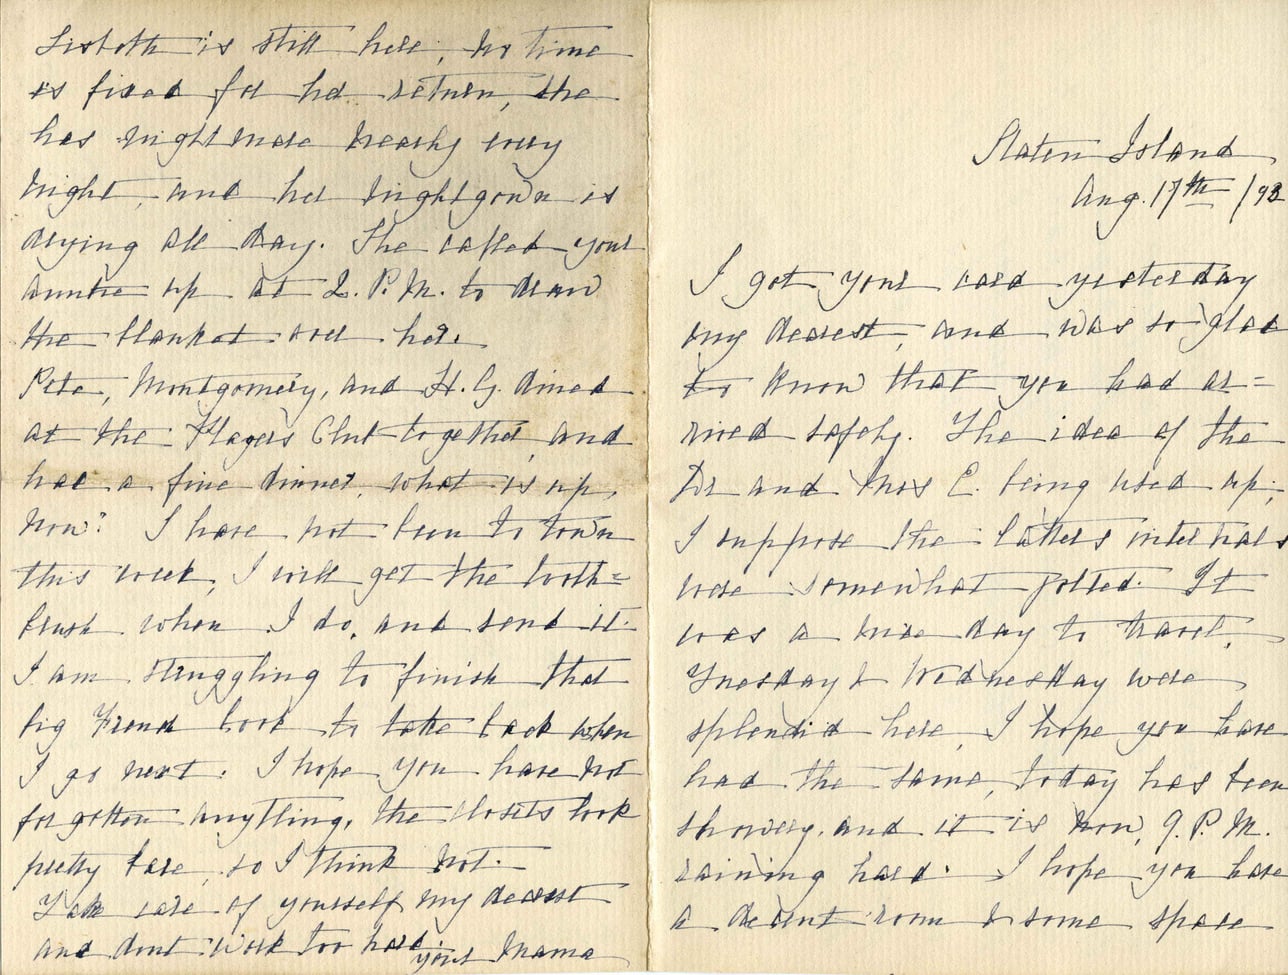 Staten Island
Aug. 17th /93
I got your card yesterday
my dearest, and was so glad
to know that you had ar=
rived safely. The idea of the
Dr and Mrs E. being used up;
I suppose the latters internals
were somewhat jolted. It
was a nice day to travel,
Tuesday & Wednesday were
splendid here, I hope you have
had the same, today has been
showery, and it is now, 9. P.M.
raining hard. I hope you have
a decent room & some space
Lisbeth is still here, no time
is fixed for her return, she
has nightmare nearly every
night, and her nightgown is
drying all day. She called your
auntie up at 2. P.M. to draw
the blanket over her.
Pete, Montgomery, and H. G. dined
at the Players Club together, and
had a fine dinner, what is up,
now? I have not been to town
this week, I will get the tooth=
brush when I do, and send it.
I am struggling to finish that
big Friend book to take back when
I go next. I hope you have not
forgotten anything, the closets look
pretty bare, so I think not.
Take care of yourself my dearest
and dont work too hard
your Mama